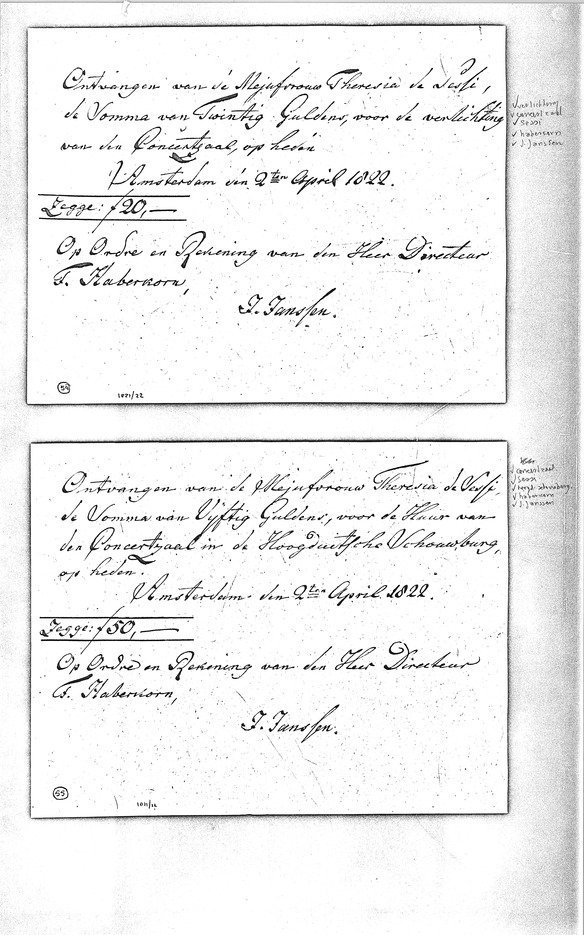 Ontvangen van de Mejufvrouw Theresia de Sessi,
de Somma van Twintig Guldens, voor de verlichting
van den Concertzaal, op heden
Amsterdam den 2ten April 1822.
Zegge: f 20,—
Op Ordre en Rekening van den Heer Directeur
F. Haberkorn,
J. Janssen.
54
1021/22
✓ verlichting
✓ concertzaal
✓ Sessi
✓ haberkorn
✓ J. Janssen
Ontvangen van de Mejufvrouw Theresia de Sessi,
de Somma van Vyftig Guldens, voor de Huur van
den Concertzaal in de Hoogduitsche Schouwburg,
op heden.
Amsterdam den 2ten April 1822.
Zegge: f 50,—
Op Ordre en Rekening van den Heer Directeur
F. Haberkorn,
J. Janssen.
55
✓ concertzaal
✓ Sessi
✓ haberkorn
✓ J. Janssen